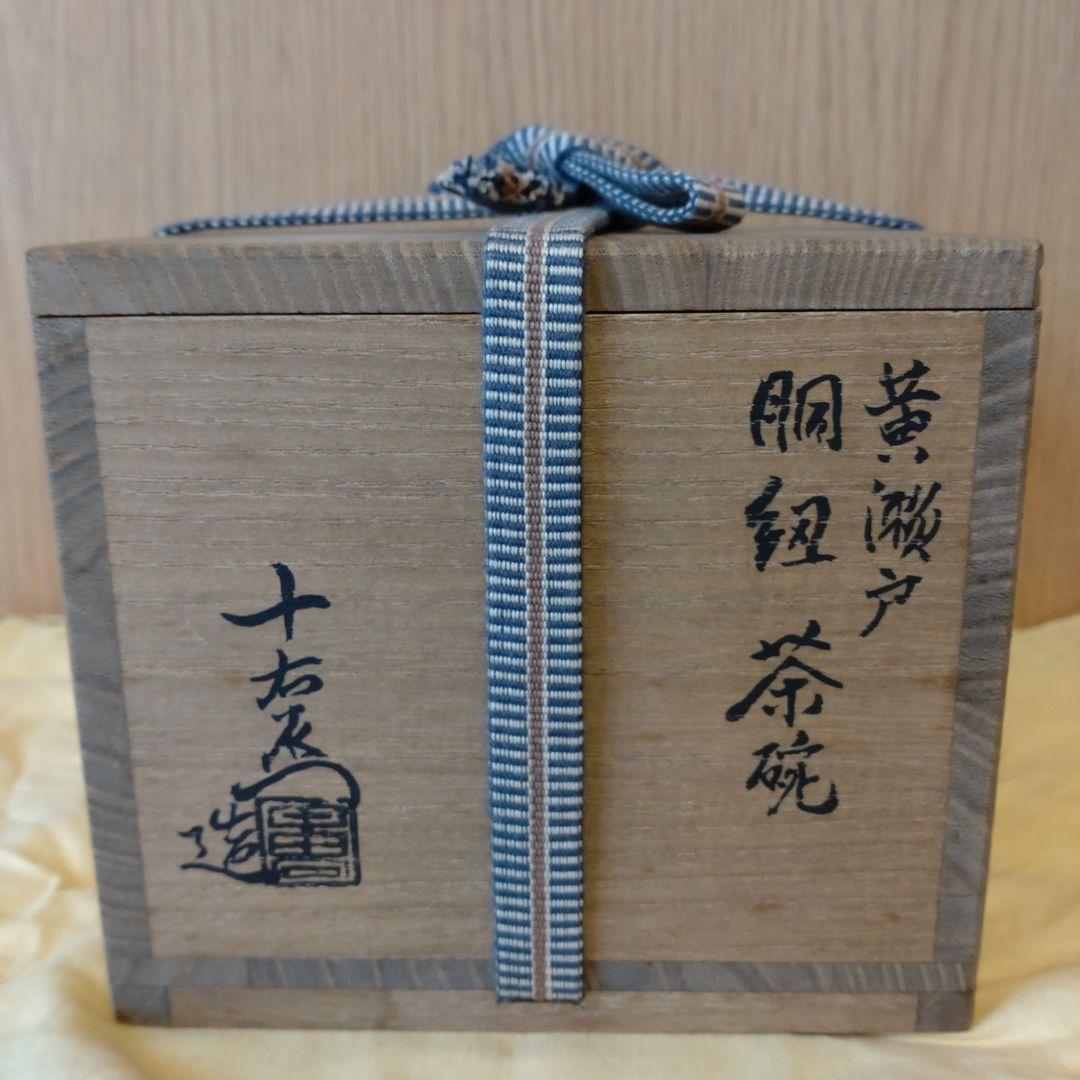 黄瀬戸
胴紐茶碗
十右衛門
造